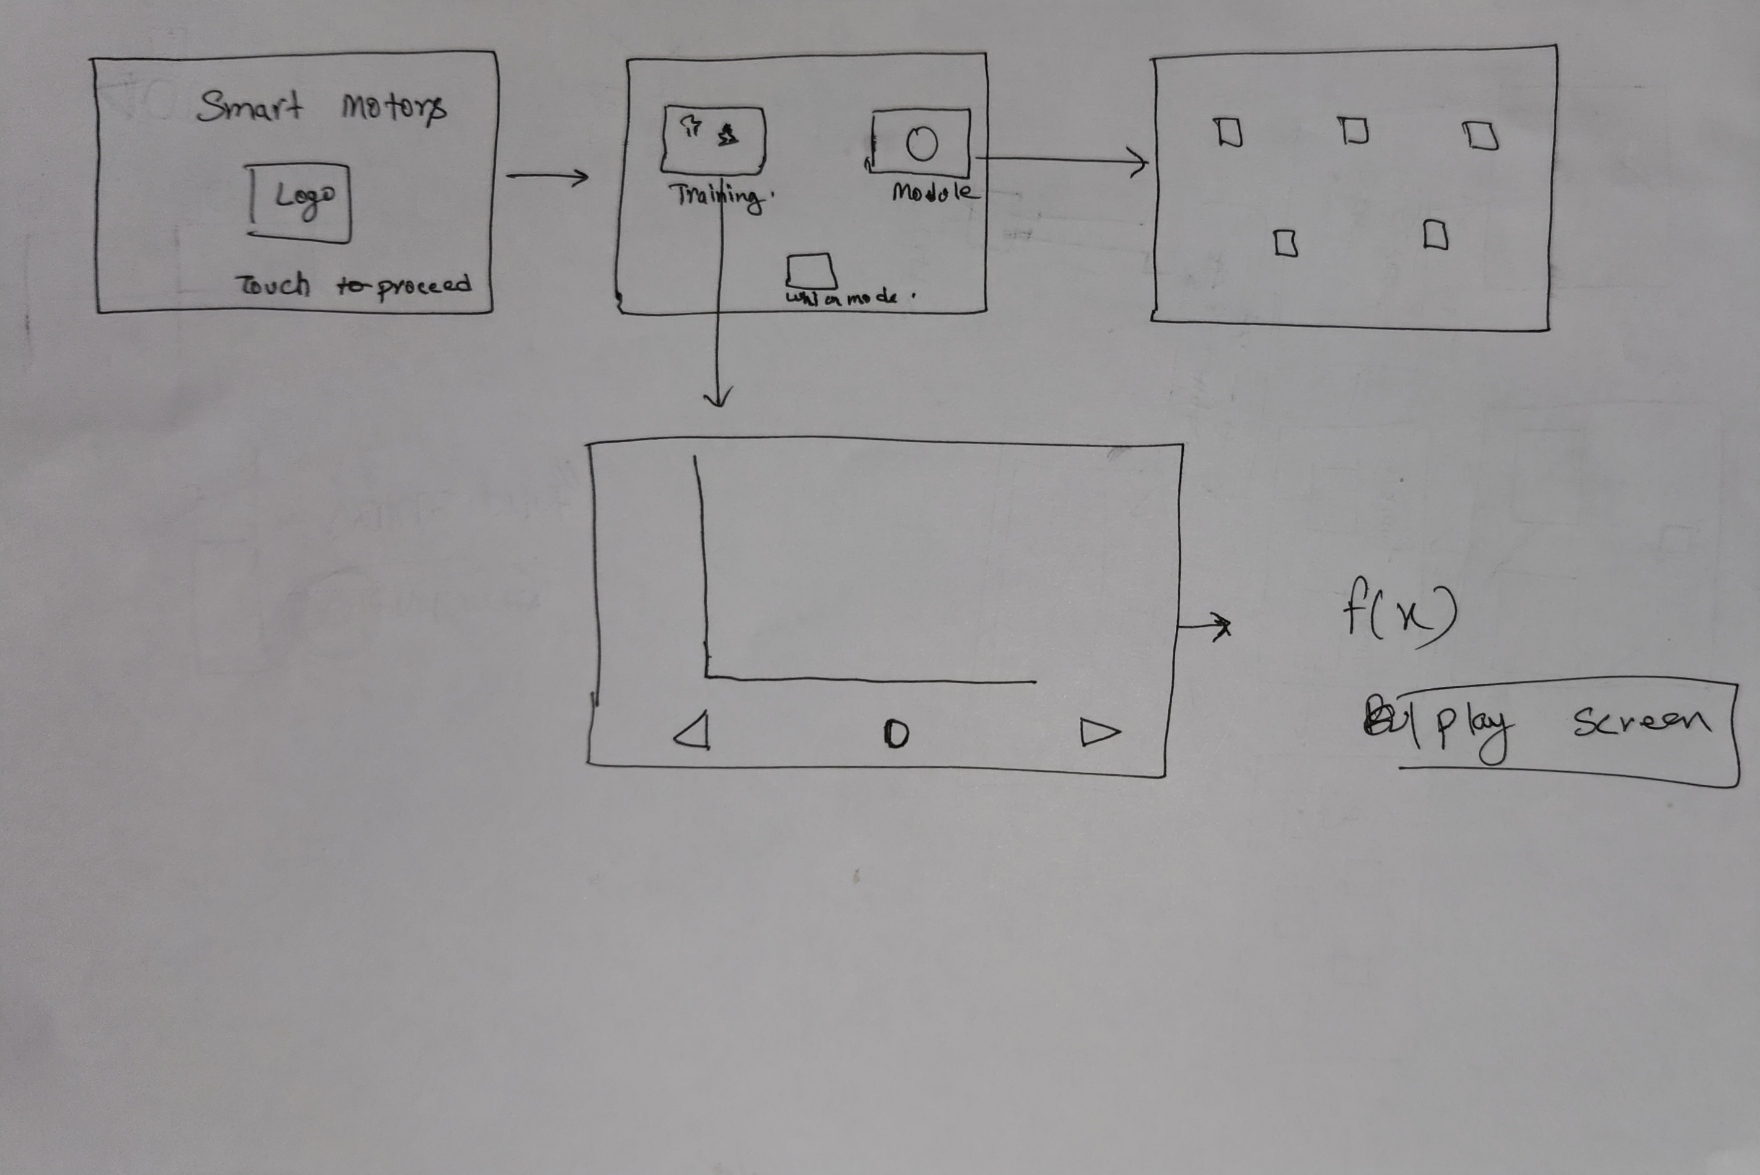 Smart Motors
Logo
Touch to proceed
Training.
Module
mode.
f(x)
play screen